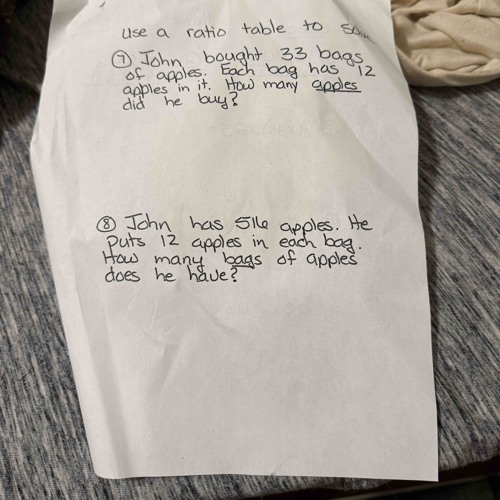 use a ratio table to
⑦ John bought 33 bags
of apples. Each bag has 12
apples in it. How many apples
did he buy?
⑧ John has 516 apples. He
puts 12 apples in each bag.
How many bags of apples
does he have?